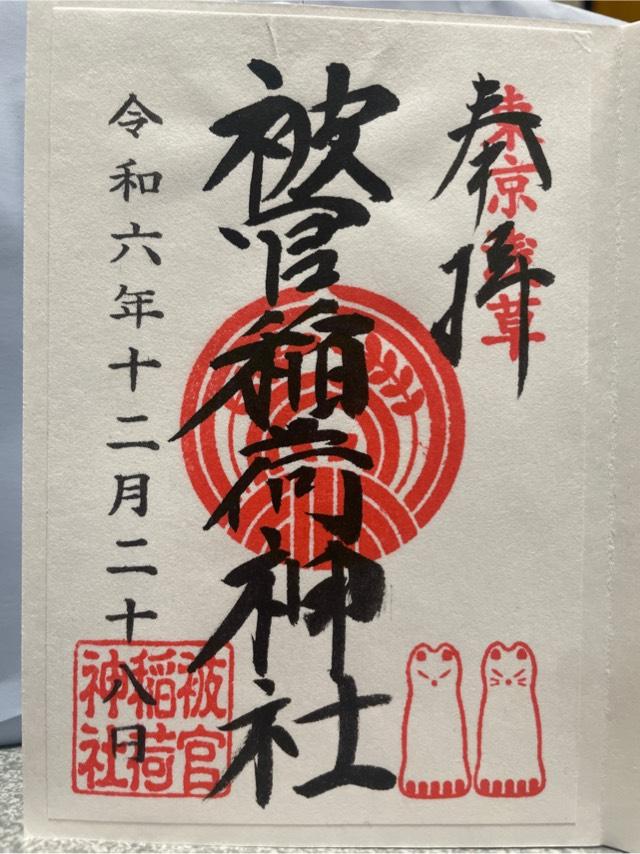 奉拝
東京浅草
被官稲荷神社
令和六年十二月二十八日
被官
稲荷
神社